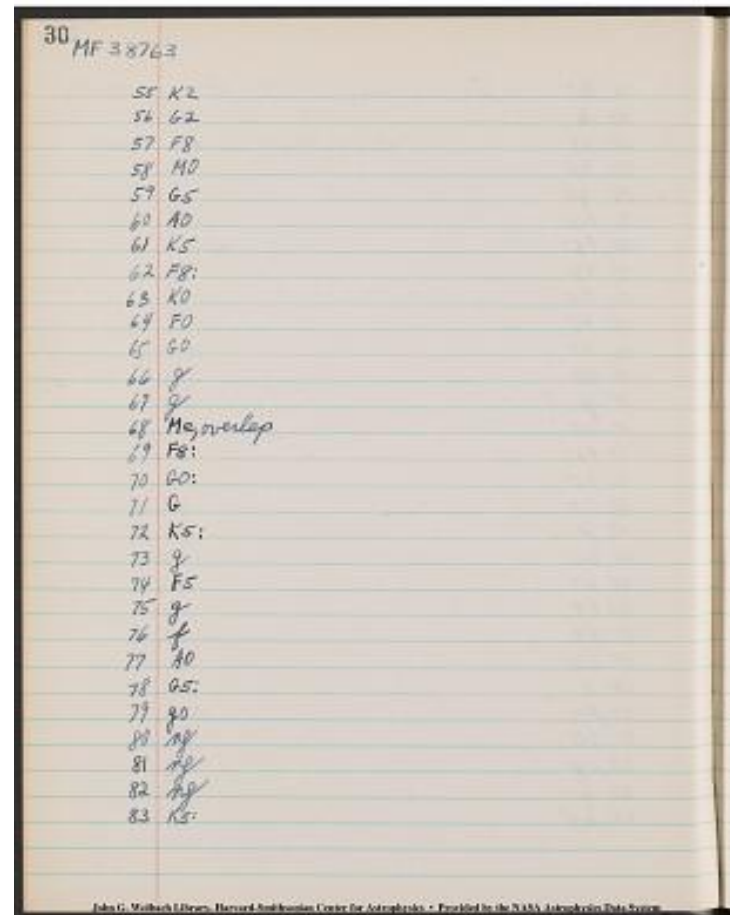 30
MF 38763
55 K2
56 G2
57 F8
58 M0
59 G5
60 A0
61 K5
62 F8:
63 K0
64 F0
65 G0
66 g
67 g
68 Me, overlap
69 F8:
70 G0:
71 G
72 K5:
73 g
74 F5
75 g
76 f
77 A0
78 G5:
79 g0
80 ng
81 ng
82 ng
83 K5:
John G. Wolbach Library, Harvard-Smithsonian Center for Astrophysics • Provided by the NASA Astrophysics Data System